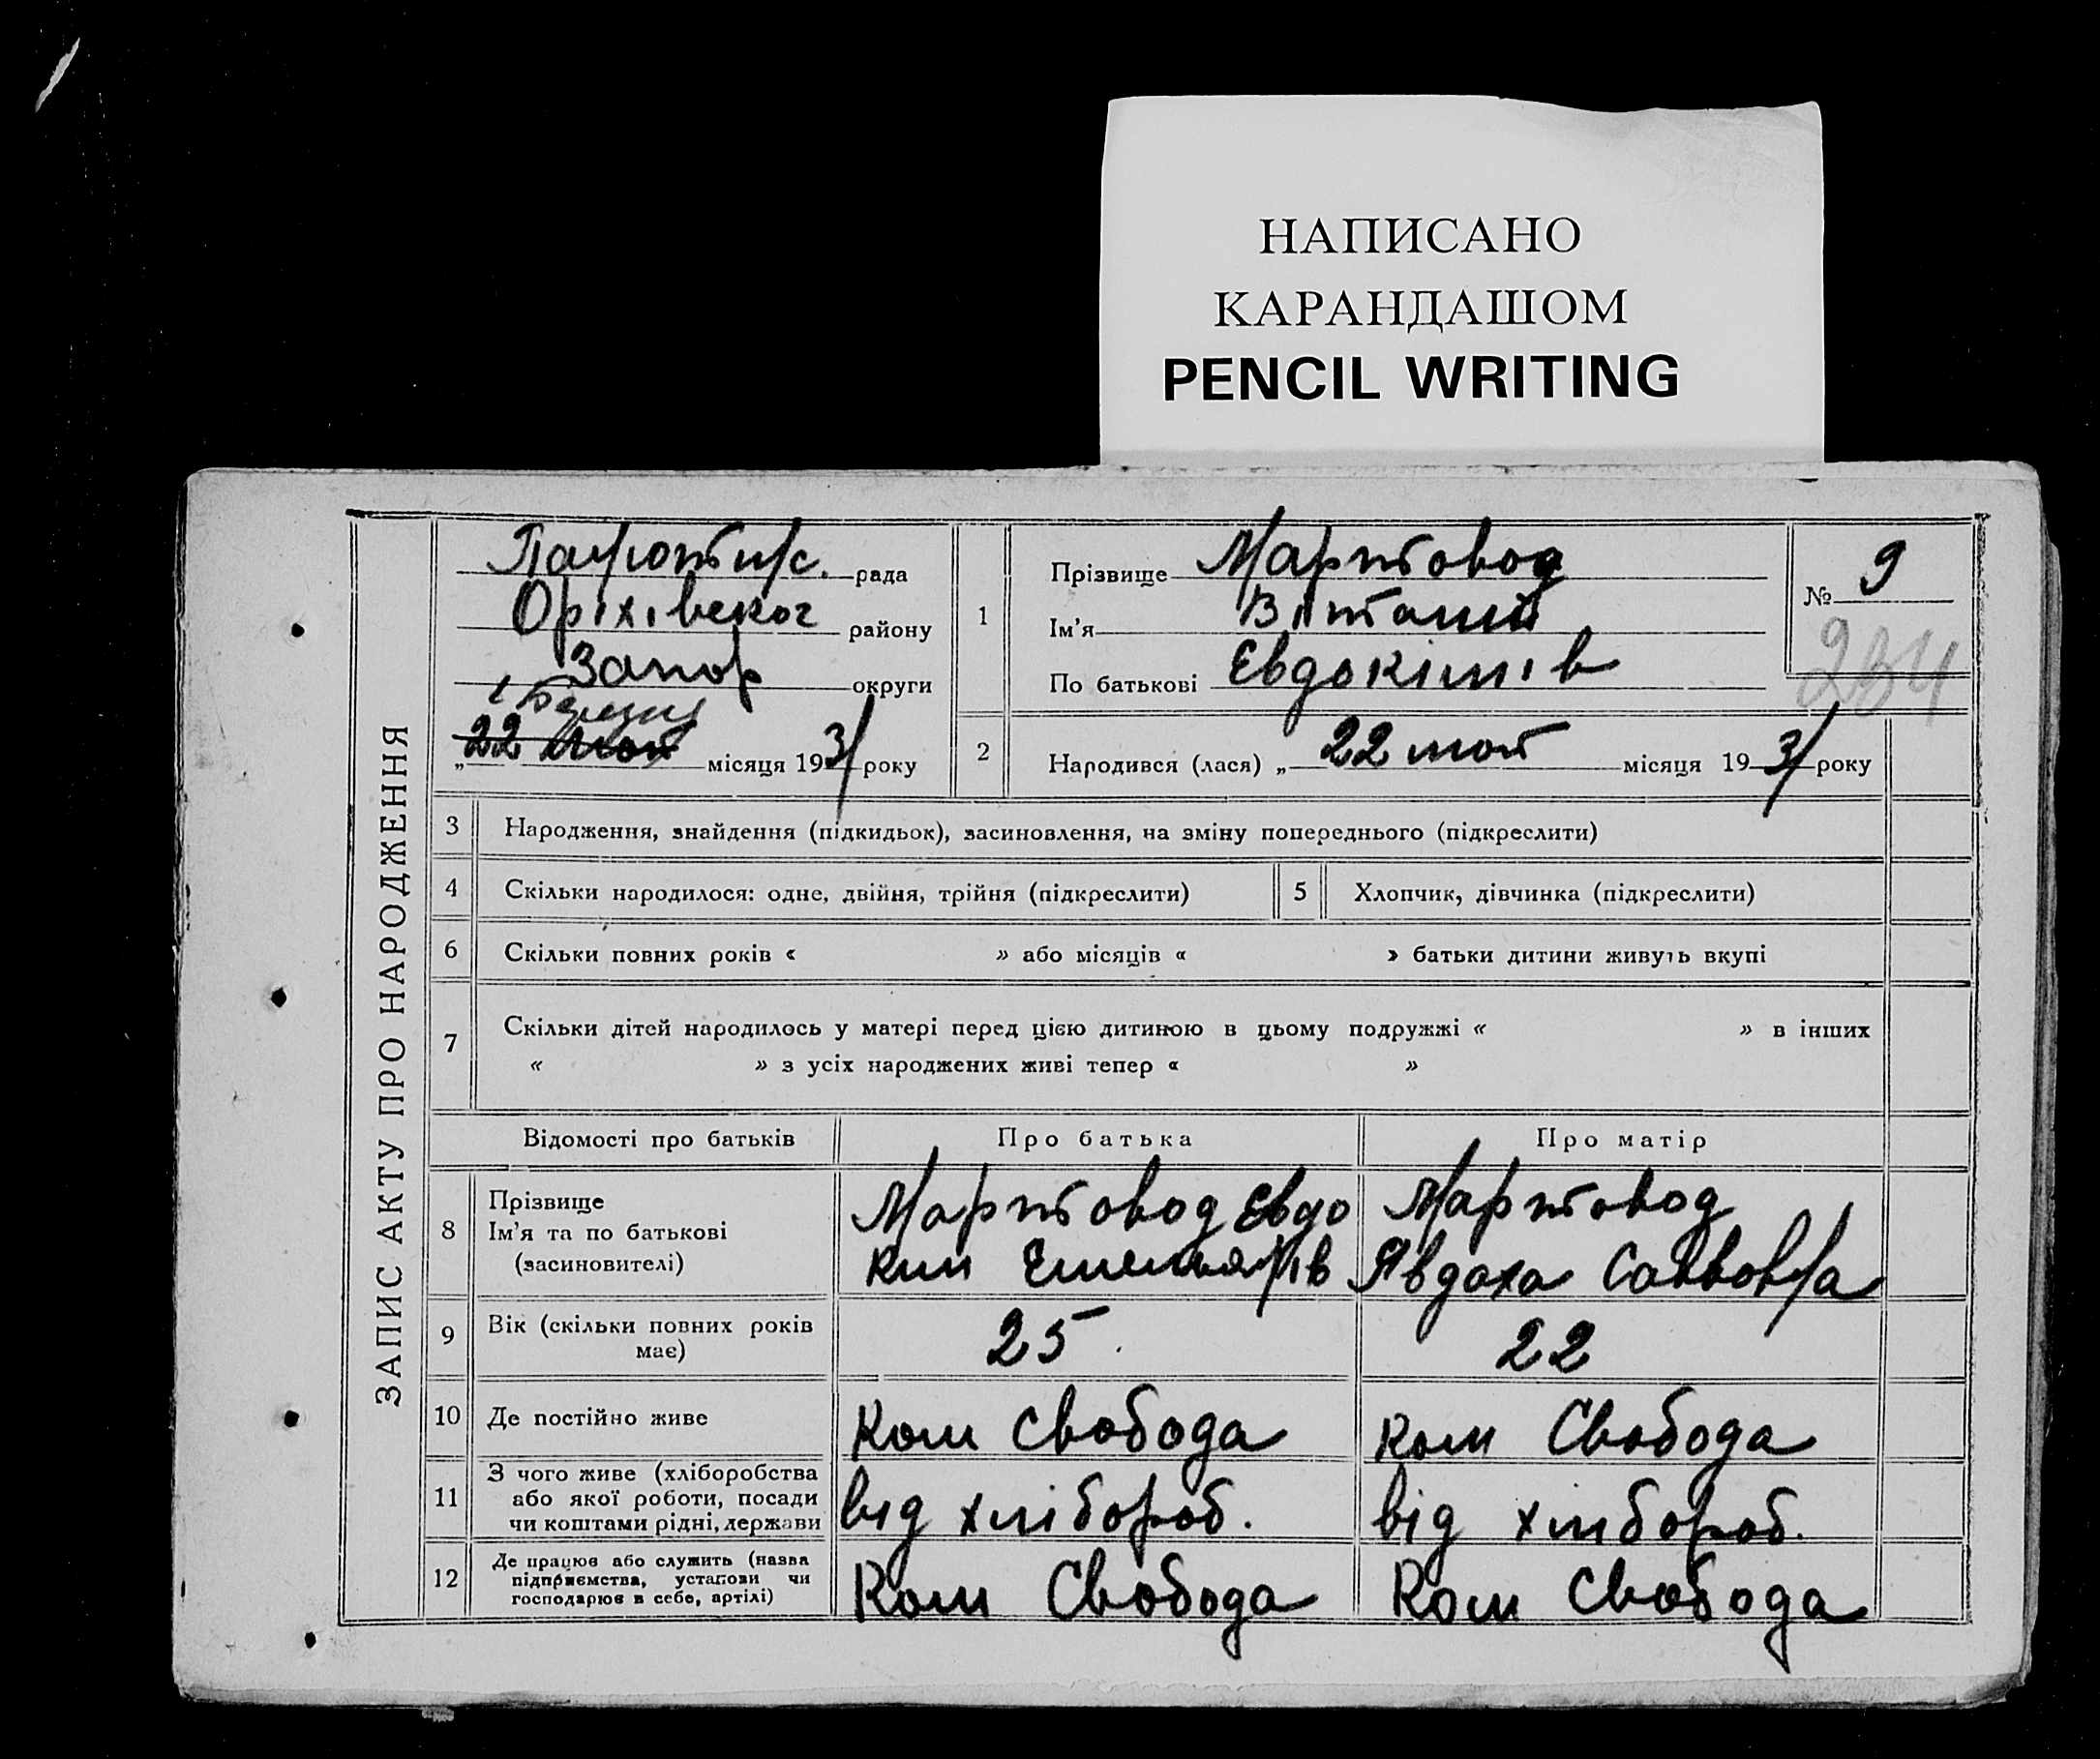 НАПИСАНО
КАРАНДАШОМ
PENCIL WRITING
ЗАПИС АКТУ ПРО НАРОДЖЕННЯ
рада
Оріхівског району
Запор округи
22 мая місяця 1931 року
1
Прізвище Мартовод
Ім'я Віталий
По батькові Євдокімів
№ 9
234
2 Народився (лася) „ 22 мая місяця 1931 року
3 Народження, знайдення (підкидьок), засиновлення, на зміну попереднього (підкреслити)
4 Скільки народилося: одне, двійня, трійня (підкреслити) 5 Хлопчик, дівчинка (підкреслити)
6 Скільки повних років « » або місяців « » батьки дитини живуть вкупі
7 Скільки дітей народилось у матері перед цією дитиною в цьому подружжі « » в інших
« » з усіх народжених живі тепер « »
Відомості про батьків Про батька Про матір
8 Прізвище
Ім'я та по батькові
(засиновителі)
Мартовод Євдо
ким Емельянів
Мартовод
Явдоха Савовна
9 Вік (скільки повних років
має)
25 22
10 Де постійно живе Ком Свобода Ком Свобода
11 З чого живе (хліборобства
або якої роботи, посади
чи коштами рідні, держави
від хлібороб. від хлібороб.
12 Де працює або служить (назва
підприємства, установи чи
господарює в себе, артілі)
Ком Свобода Ком Свобода